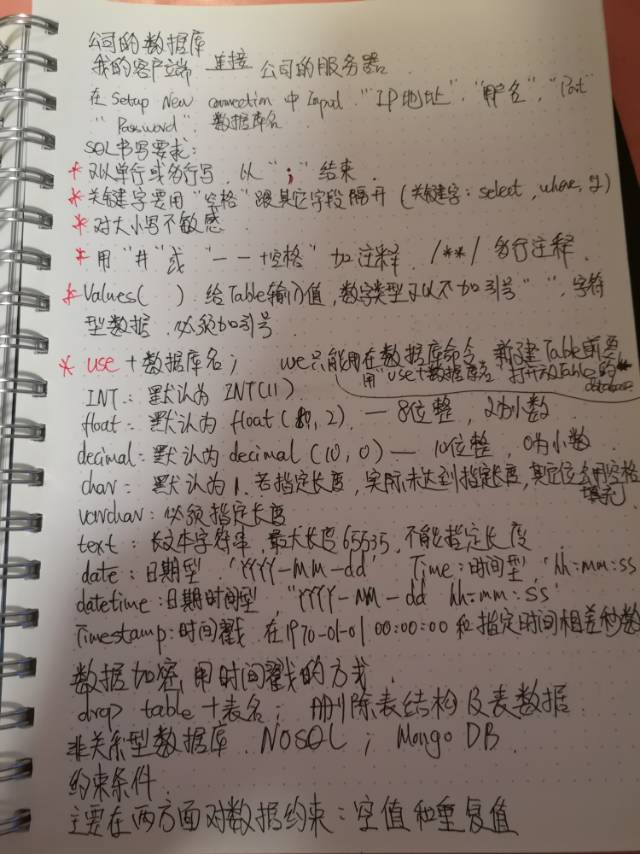 公司的数据库
我的客户端 连接 公司的服务器
在 Setup New connection 中 Input "IP地址"、"用户名"、"Port"
"Password" 数据库名
SQL书写要求:
* 可以单行或多行写,以 ";" 结束.
* 关键字要用 "空格" 跟其它字段隔开 (关键字: select, where, 等)
* 对大小写不敏感
* 用 "#" 或 "--+空格" 加注释. /**/ 多行注释.
* Values( ) 给Table输入值,数字类型可以不加引号" ",字符
型数据,必须加引号.
* use + 数据库名; use只能用在数据库命令 新建Table前要
用 "use+数据库名" 打开放Table的
database
INT: 默认为 INT(11)
float: 默认为 float(8, 2). — 8位整, 2为小数
decimal: 默认为 decimal (10, 0) — 10位整, 0为小数
char: 默认为1. 若指定长度,实际未达到指定长度,其它位会用空格
填充
varchar: 必须指定长度
text: 长文本字符串,最大长度65535,不能指定长度
date: 日期型. 'YYYY-MM-dd' Time: 时间型, 'hh:mm:ss
datetime: 日期时间型, "YYYY-MM-dd hh:mm:ss
Timestamp: 时间戳, 在1970-01-01 00:00:00 和指定时间相差秒数
数据加密,用时间戳的方式.
drop table + 表名; 删除表结构及表数据
非关系型数据库. NoSQL; Mongo DB
约束条件
主要在两方面对数据约束: 空值和重复值